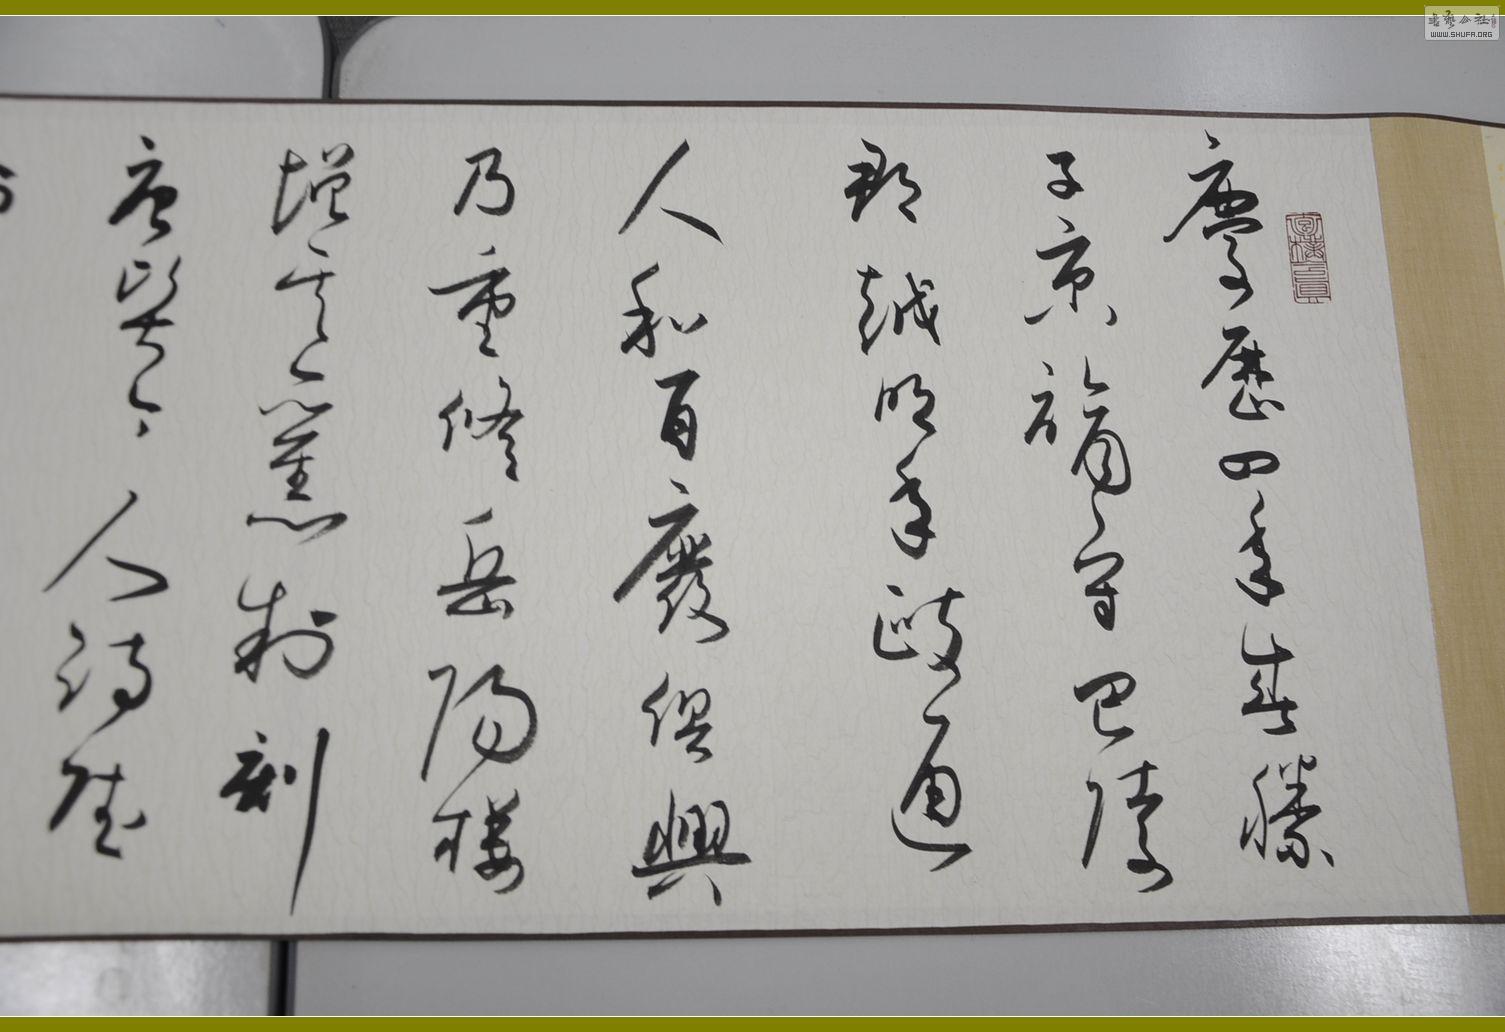 慶歷四年春滕
子京謫守巴陵
郡越明年政通
人和百廢俱興
乃重修岳陽樓
增其舊制刻
唐賢今人詩賦
书艺公社
WWW.SHUFA.ORG